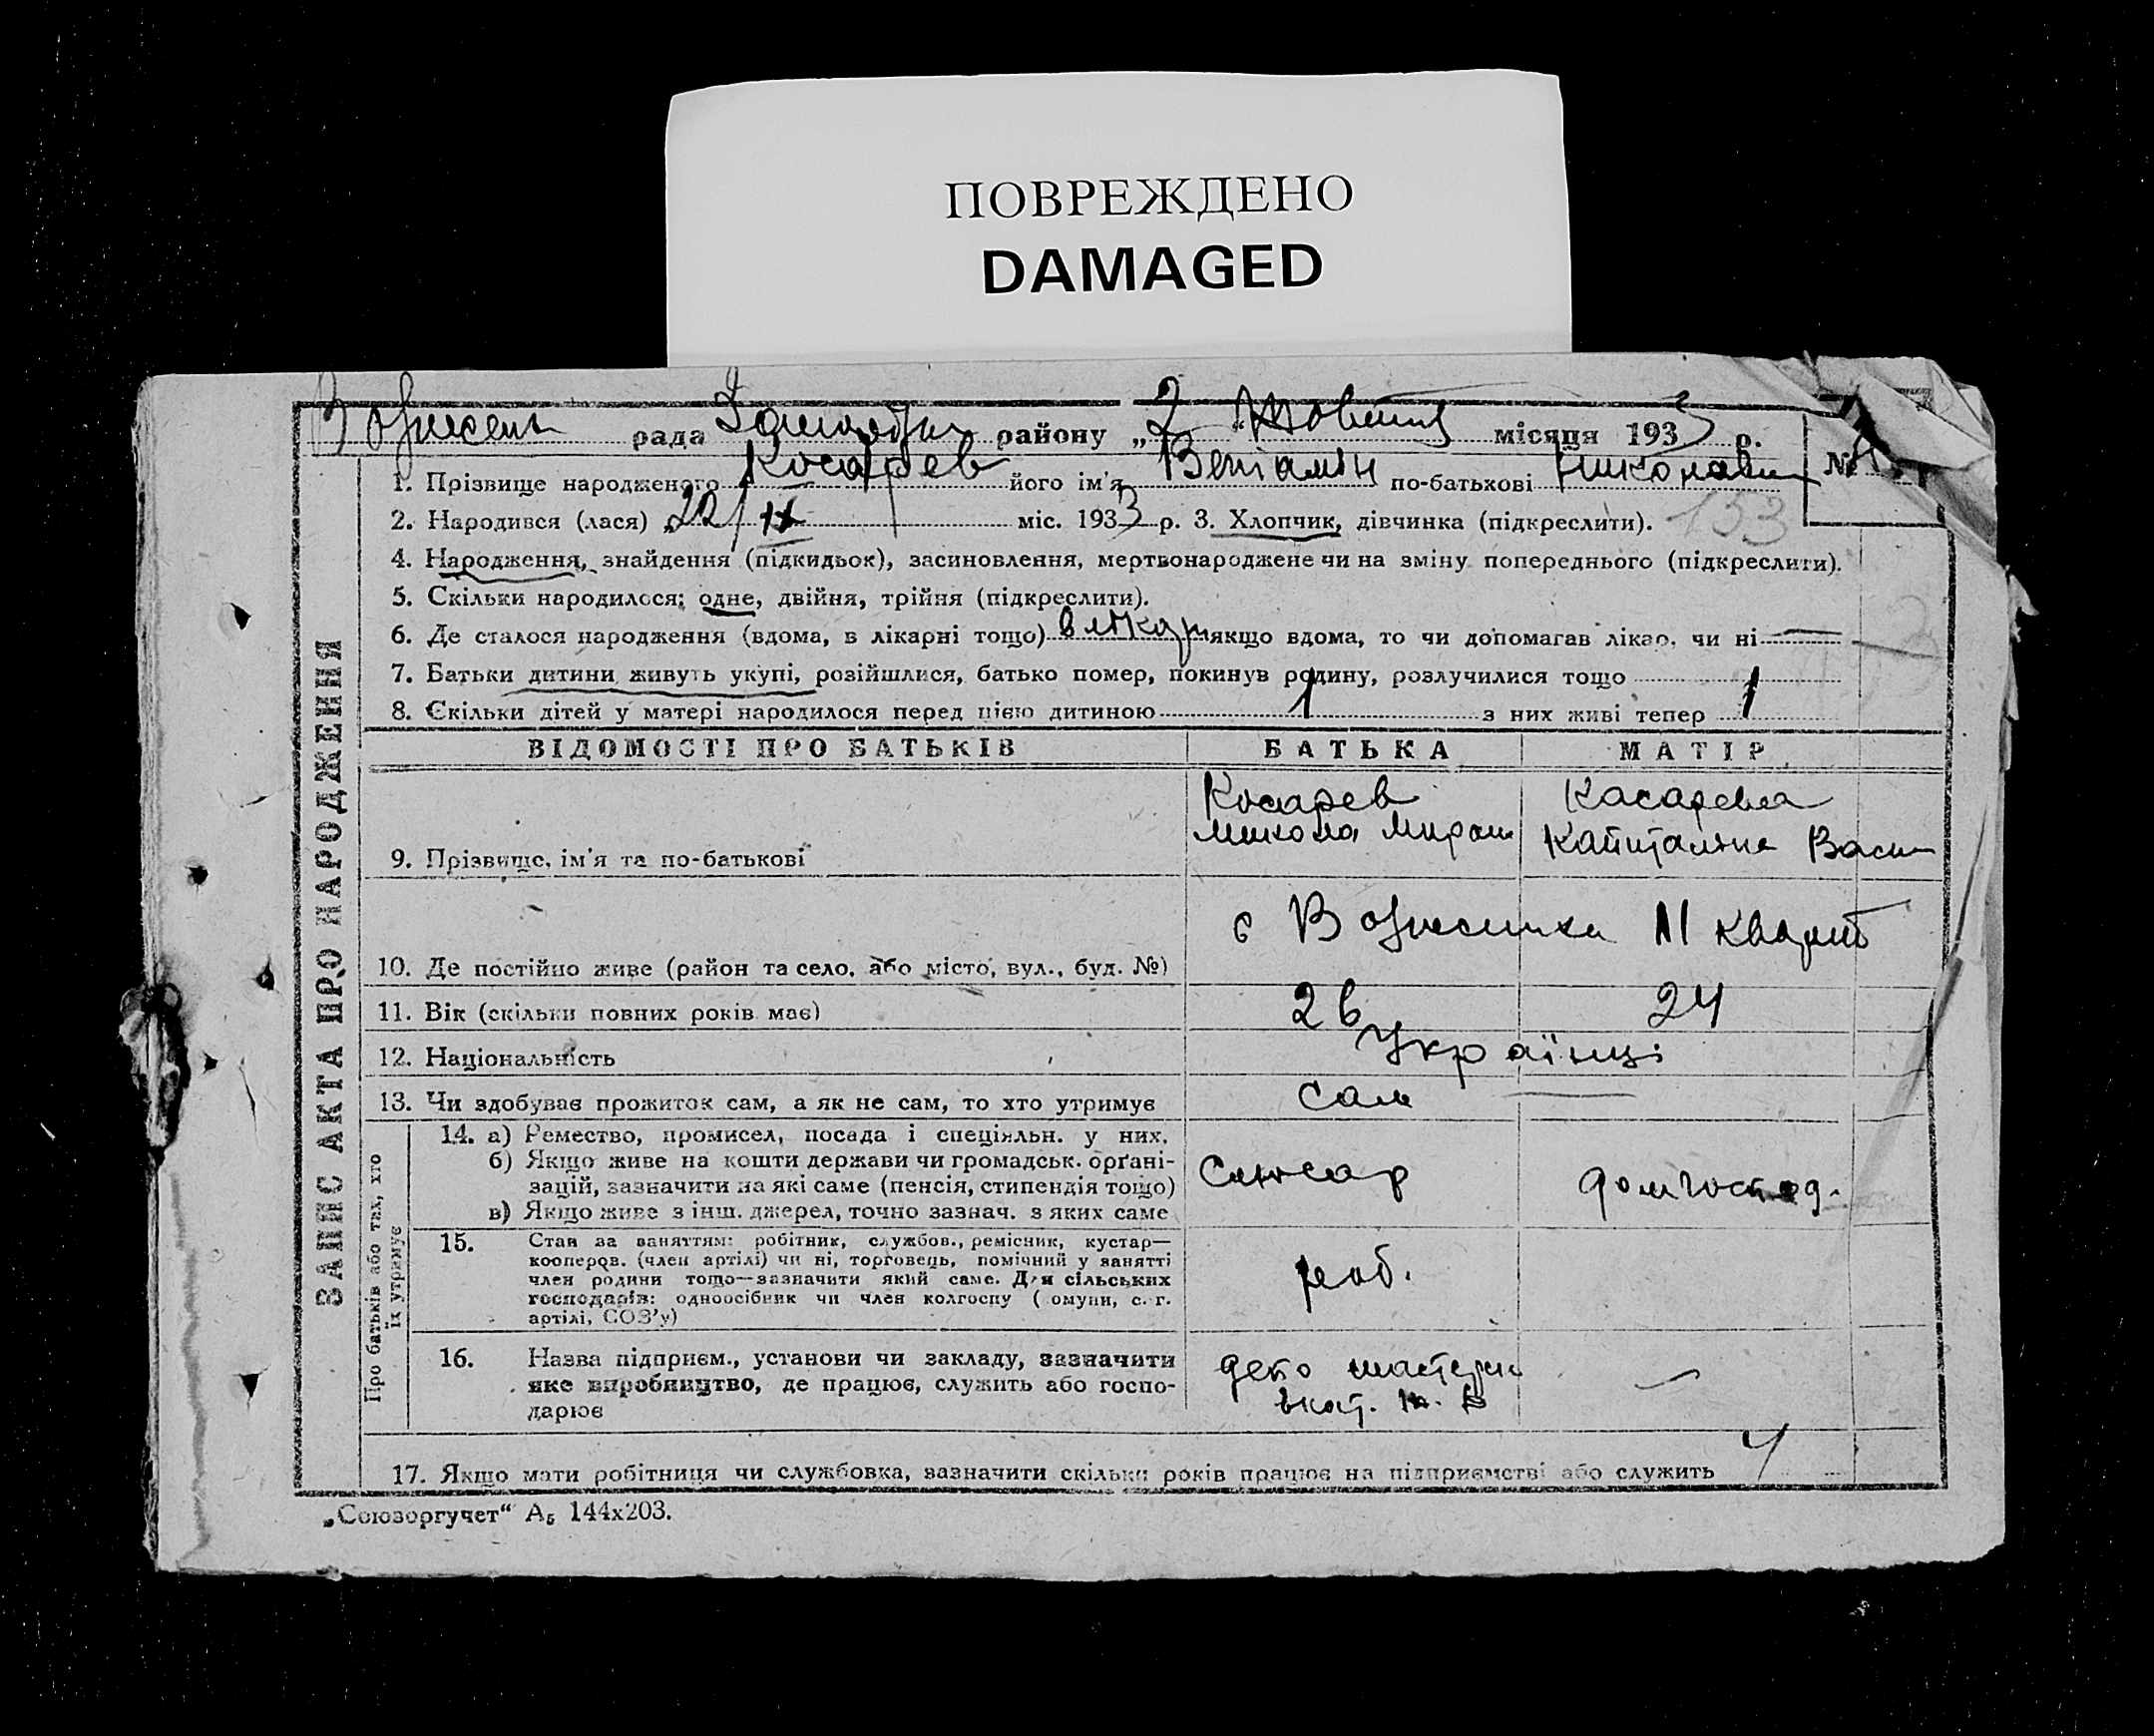 ПОВРЕЖДЕНО
DAMAGED
рада району „2 Жовтня місяця 1933 р.
№
1. Прізвище народженого Косарев його ім'я Веніамін по-батькові Николаев
2. Народився (лася) „22/IX міс. 1933 р. 3. Хлопчик, дівчинка (підкреслити). 133
4. Народження, знайдення (підкидьок), засиновлення, мертвонароджене чи на зміну попереднього (підкреслити).
5. Скільки народилося: одне, двійня, трійня (підкреслити).
6. Де сталося народження (вдома, в лікарні тощо) в лікарн якщо вдома, то чи допомагав лікар, чи ні —
7. Батьки дитини живуть укупі, розійшлися, батько помер, покинув родину, розлучилися тощо
8. Скільки дітей у матері народилося перед цією дитиною 1 з них живі тепер 1
ВІДОМОСТІ ПРО БАТЬКІВ БАТЬКА МАТІР
Косарев Касарева
Микола Мирон Капиталіна Васи
9. Прізвище, ім'я та по-батькові
с Вознесенка
10. Де постійно живе (район та село, або місто, вул., буд. №)
11. Вік (скільки повних років має) 26 24
12. Національність Українці
13. Чи здобуває прожиток сам, а як не сам, то хто утримує сам —
14. а) Ремество, промисел, посада і спеціяльн. у них.
б) Якщо живе на кошти держави чи громадськ. орґані-
зацій, зазначити на які саме (пенсія, стипендія тощо)
в) Якщо живе з інш. джерел, точно зазнач. з яких саме
Слюсар домгоспод.
15. Стан за заняттям: робітник, службов., ремісник, кустар—
кооперов. (член артілі) чи ні, торговець, помічний у занятті
член родини тощо—зазначити який саме. Для сільських
господарів: одноосібник чи член колгоспу ( омуни, с.-г.
артілі, СОЗ'у)
роб.
16. Назва підприєм., установи чи закладу, зазначити
яке виробництво, де працює, служить або госпо-
дарює
депо мастерн —
17. Якщо мати робітниця чи службовка, зазначити скільки років працює на підприємстві або служить 4
„Союзоргучет“ А₅ 144х203.
ЗАПИС АКТА ПРО НАРОДЖЕННЯ
Про батьків або тих, хто
їх утримує